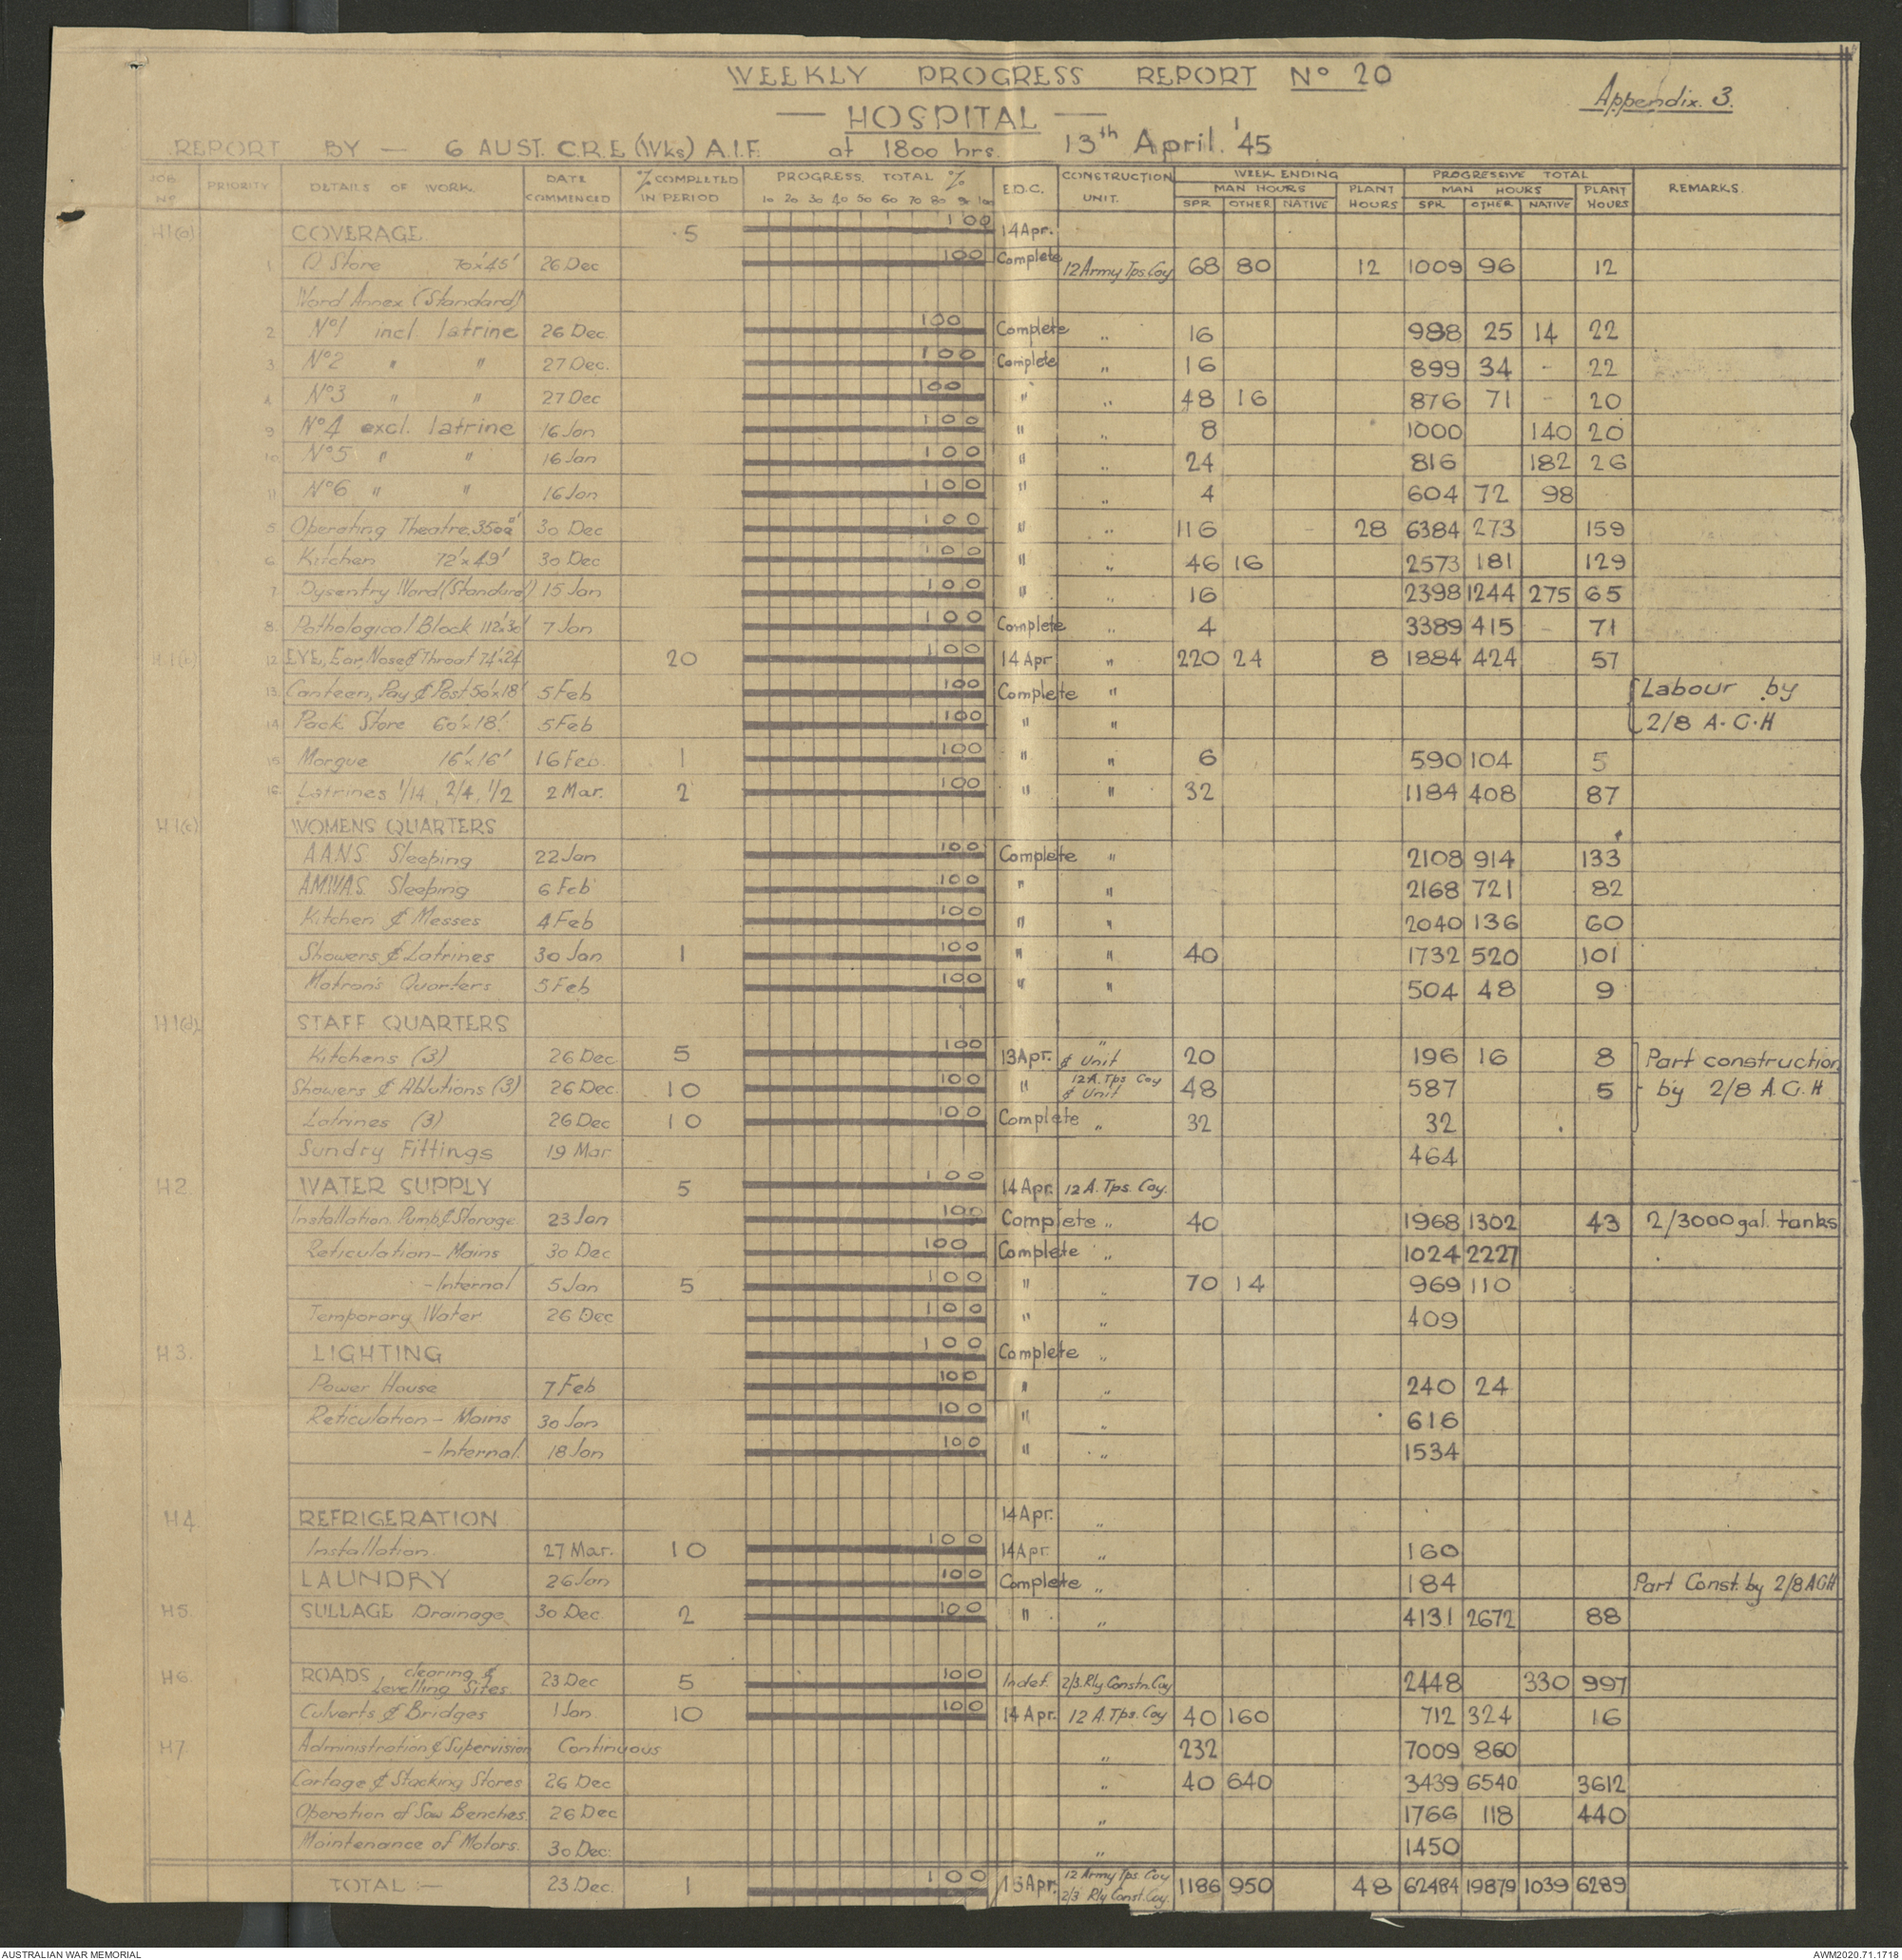 WEEKLY PROGRESS REPORT Nº 20
Appendix. 3.
— HOSPITAL —
REPORT BY — 6 AUST. C.R.E (Wks) A.I.F. at 1800 hrs. 13th April. '45
JOB Nº PRIORITY DETAILS OF WORK. DATE COMMENCED % COMPLETED IN PERIOD PROGRESS TOTAL % E.D.C. CONSTRUCTION UNIT. WEEK ENDING PROGRESSIVE TOTAL REMARKS.
MAN HOURS PLANT HOURS MAN HOURS PLANT HOURS
10 20 30 40 50 60 70 80 90 100 SPR OTHER NATIVE SPR OTHER NATIVE
H1(a) COVERAGE ·5 100 14 Apr.
1 Q Store 70'x45' 26 Dec 100 Complete 12 Army Tps. Coy 68 80 12 1009 96 12
Ward Annex (Standard)
2 Nº1 incl latrine 26 Dec. 100 Complete " 16 988 25 14 22
3 Nº2 " " 27 Dec. 100 Complete " 16 899 34 - 22
4 Nº3 " " 27 Dec 100 " " 48 16 876 71 - 20
9 Nº4 excl. latrine 16 Jan 100 " " 8 1000 140 20
10 Nº5 " " 16 Jan 100 " " 24 816 182 26
11 Nº6 " " 16 Jan 100 " " 4 604 72 98
5 Operating Theatre, 3500 30 Dec 100 " " 116 28 6384 273 159
6 Kitchen 72'x49' 30 Dec 100 " " 46 16 2573 181 129
7 Dysentry Ward (Standard) 15 Jan 100 " " 16 2398 1244 275 65
8. Pathological Block 112'x30' 7 Jan 100 Complete " 4 3389 415 - 71
H1(b) 12 EYE, Ear, Nose & Throat 74'x24' 20 100 14 Apr " 220 24 8 1884 424 57
13. Canteen, Pay & Post 50'x18' 5 Feb 100 Complete " Labour by
14. Pack Store 60'x18'. 5 Feb 100 " " 2/8 A.G.H
15 Morgue 16'x16' 16 Feb. 1 100 " " 6 590 104 5
16. Latrines 1/14, 2/4, 1/2 2 Mar. 2 100 " " 32 1184 408 87
H1(c) WOMENS QUARTERS
A.A.N.S. Sleeping 22 Jan 100 Complete " 2108 914 133
AMWAS. Sleeping 6 Feb 100 " " 2168 721 82
Kitchen & Messes 4 Feb 100 " " 2040 136 60
Showers & Latrines 30 Jan 1 100 " " 40 1732 520 101
Matron's Quarters 5 Feb 100 " " 504 48 9
H1(d) STAFF QUARTERS
Kitchens (3) 26 Dec 5 100 13 Apr. " & Unit 20 196 16 8 Part construction
Showers & Ablutions (3) 26 Dec. 10 100 " 12 A. Tps Coy & Unit 48 587 5 by 2/8 A.G.H
Latrines (3) 26 Dec 10 100 Complete " 32 32
Sundry Fittings 19 Mar 464
H2 WATER SUPPLY 5 100 14 Apr. 12 A. Tps. Coy.
Installation Pump & Storage 23 Jan 100 Complete " 40 1968 1302 43 2/3000 gal. tanks
Reticulation - Mains 30 Dec 100 Complete " 1024 2227
- Internal 5 Jan 5 100 " " 70 14 969 110
Temporary Water 26 Dec 100 " " 409
H3. LIGHTING 100 Complete "
Power House 7 Feb 100 " " 240 24
Reticulation - Mains 30 Jan 100 " " 616
- Internal. 18 Jan 100 " " 1534
H4 REFRIGERATION 14 Apr. "
Installation. 27 Mar. 10 100 14 Apr. " 160
LAUNDRY 26 Jan 100 Complete " 184 Part Const. by 2/8 AGH
H5. SULLAGE Drainage 30 Dec 2 100 " " 4131 2672 88
H6. ROADS, clearing & Levelling Sites. 23 Dec 5 100 Indef. 2/3. Rly Constn. Coy 2448 330 997
Culverts & Bridges 1 Jan 10 100 14 Apr. 12 A. Tps. Coy 40 160 712 324 16
H7 Administration & Supervision Continuous " 232 7009 860
Cartage & Stacking Stores 26 Dec " 40 640 3439 6540 3612
Operation of Saw Benches 26 Dec " 1766 118 440
Maintenance of Motors. 30 Dec. " 1450
TOTAL :— 23 Dec. 1 100 15 Apr. 12 Army Tps. Coy 2/3 Rly Const. Coy. 1186 950 48 62484 19879 1039 6289
AUSTRALIAN WAR MEMORIAL AWM2020.71.1718